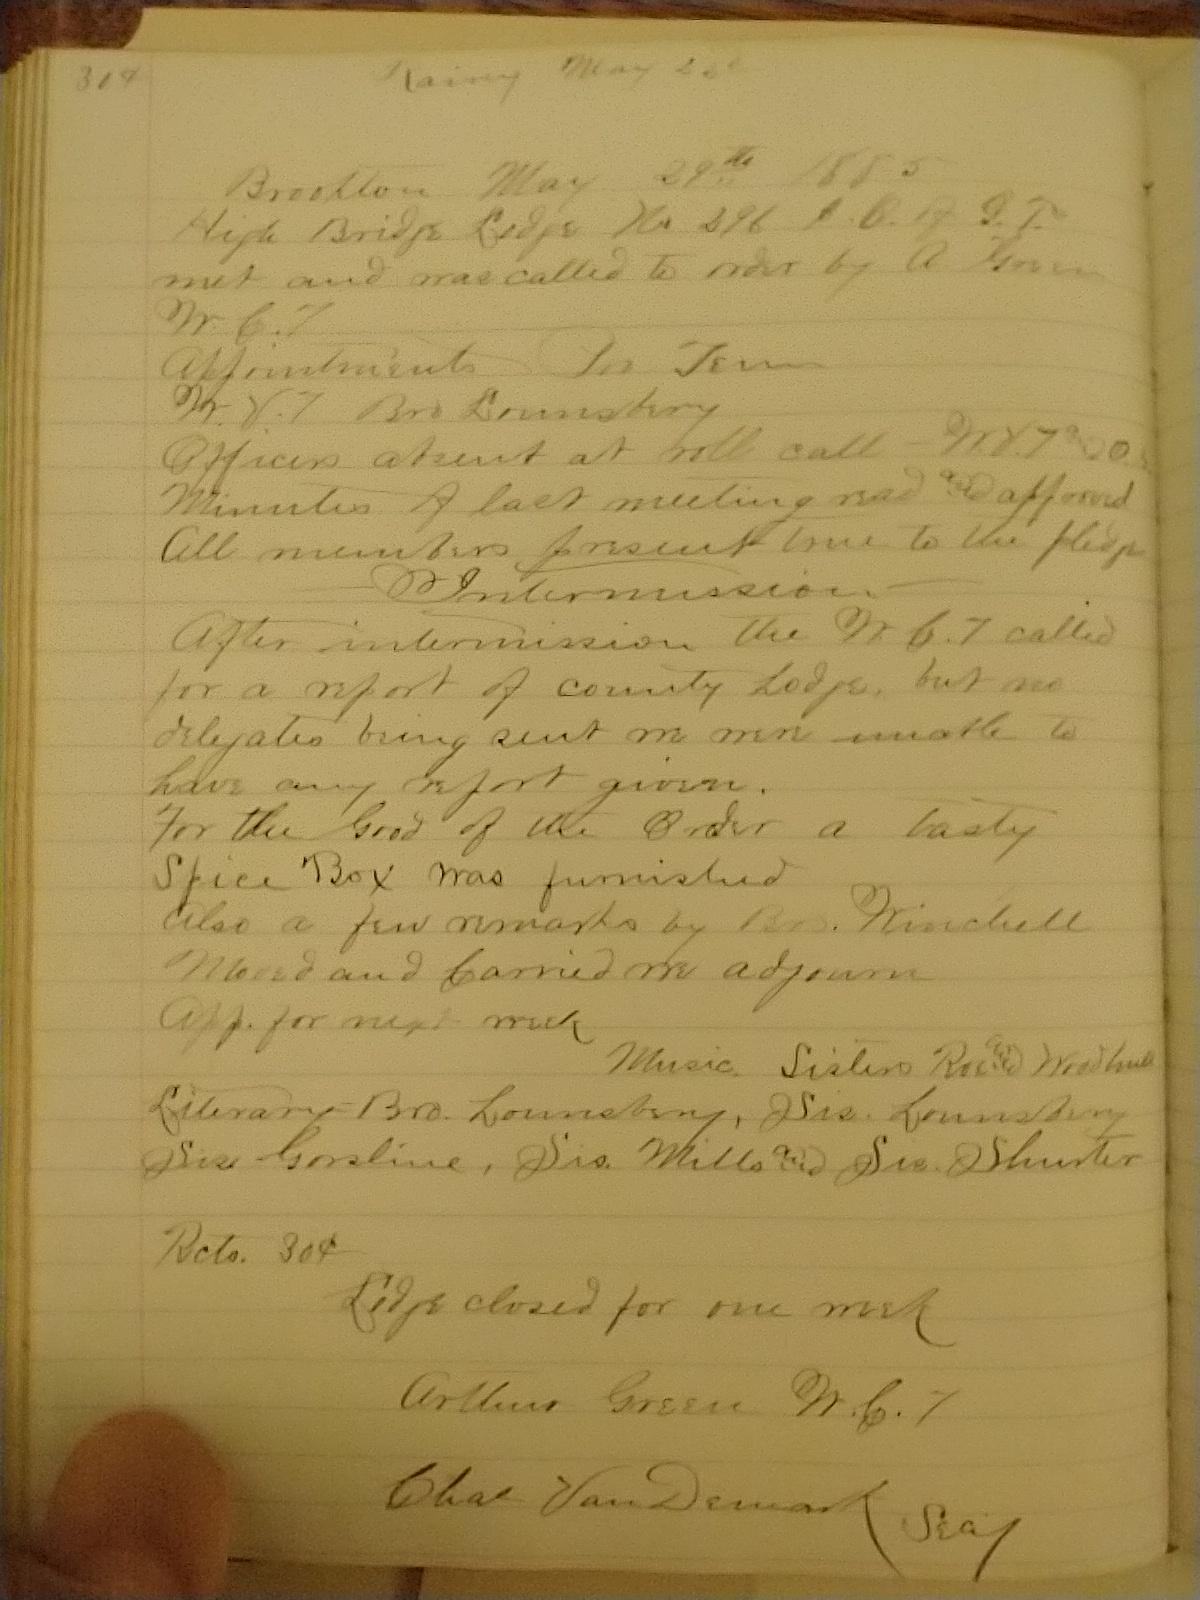 304 Rainy May 22d
Brookton May 29th 1885
High Bridge Lodge No 296 I. O. of G. T.
met and was called to order by A Green
W. C. T
Appointments Pro Tem
W. V. T Bro Lounsbery
Officers absent at roll call - W. V. T and O. S
Minutes of last meeting read and approved
All members present true to the pledge
Intermission
After intermission the W. C. T called
for a report of county Lodge, but no
delegates being sent we were unable to
have any report given.
For the Good of the Order a tasty
Spice Box was furnished
Also a few remarks by Bro. Winchell
Moved and Carried we adjourn
App. for next week
Music. Sisters Roe and Woodhull
Literary - Bro. Lounsbery, Sis. Lounsbery
Sis Gorsline, Sis. Mills and Sis. Shurter
Rcts. 30¢
Lodge closed for one week
Arthur Green W. C. T
Chas VanDemark Secy